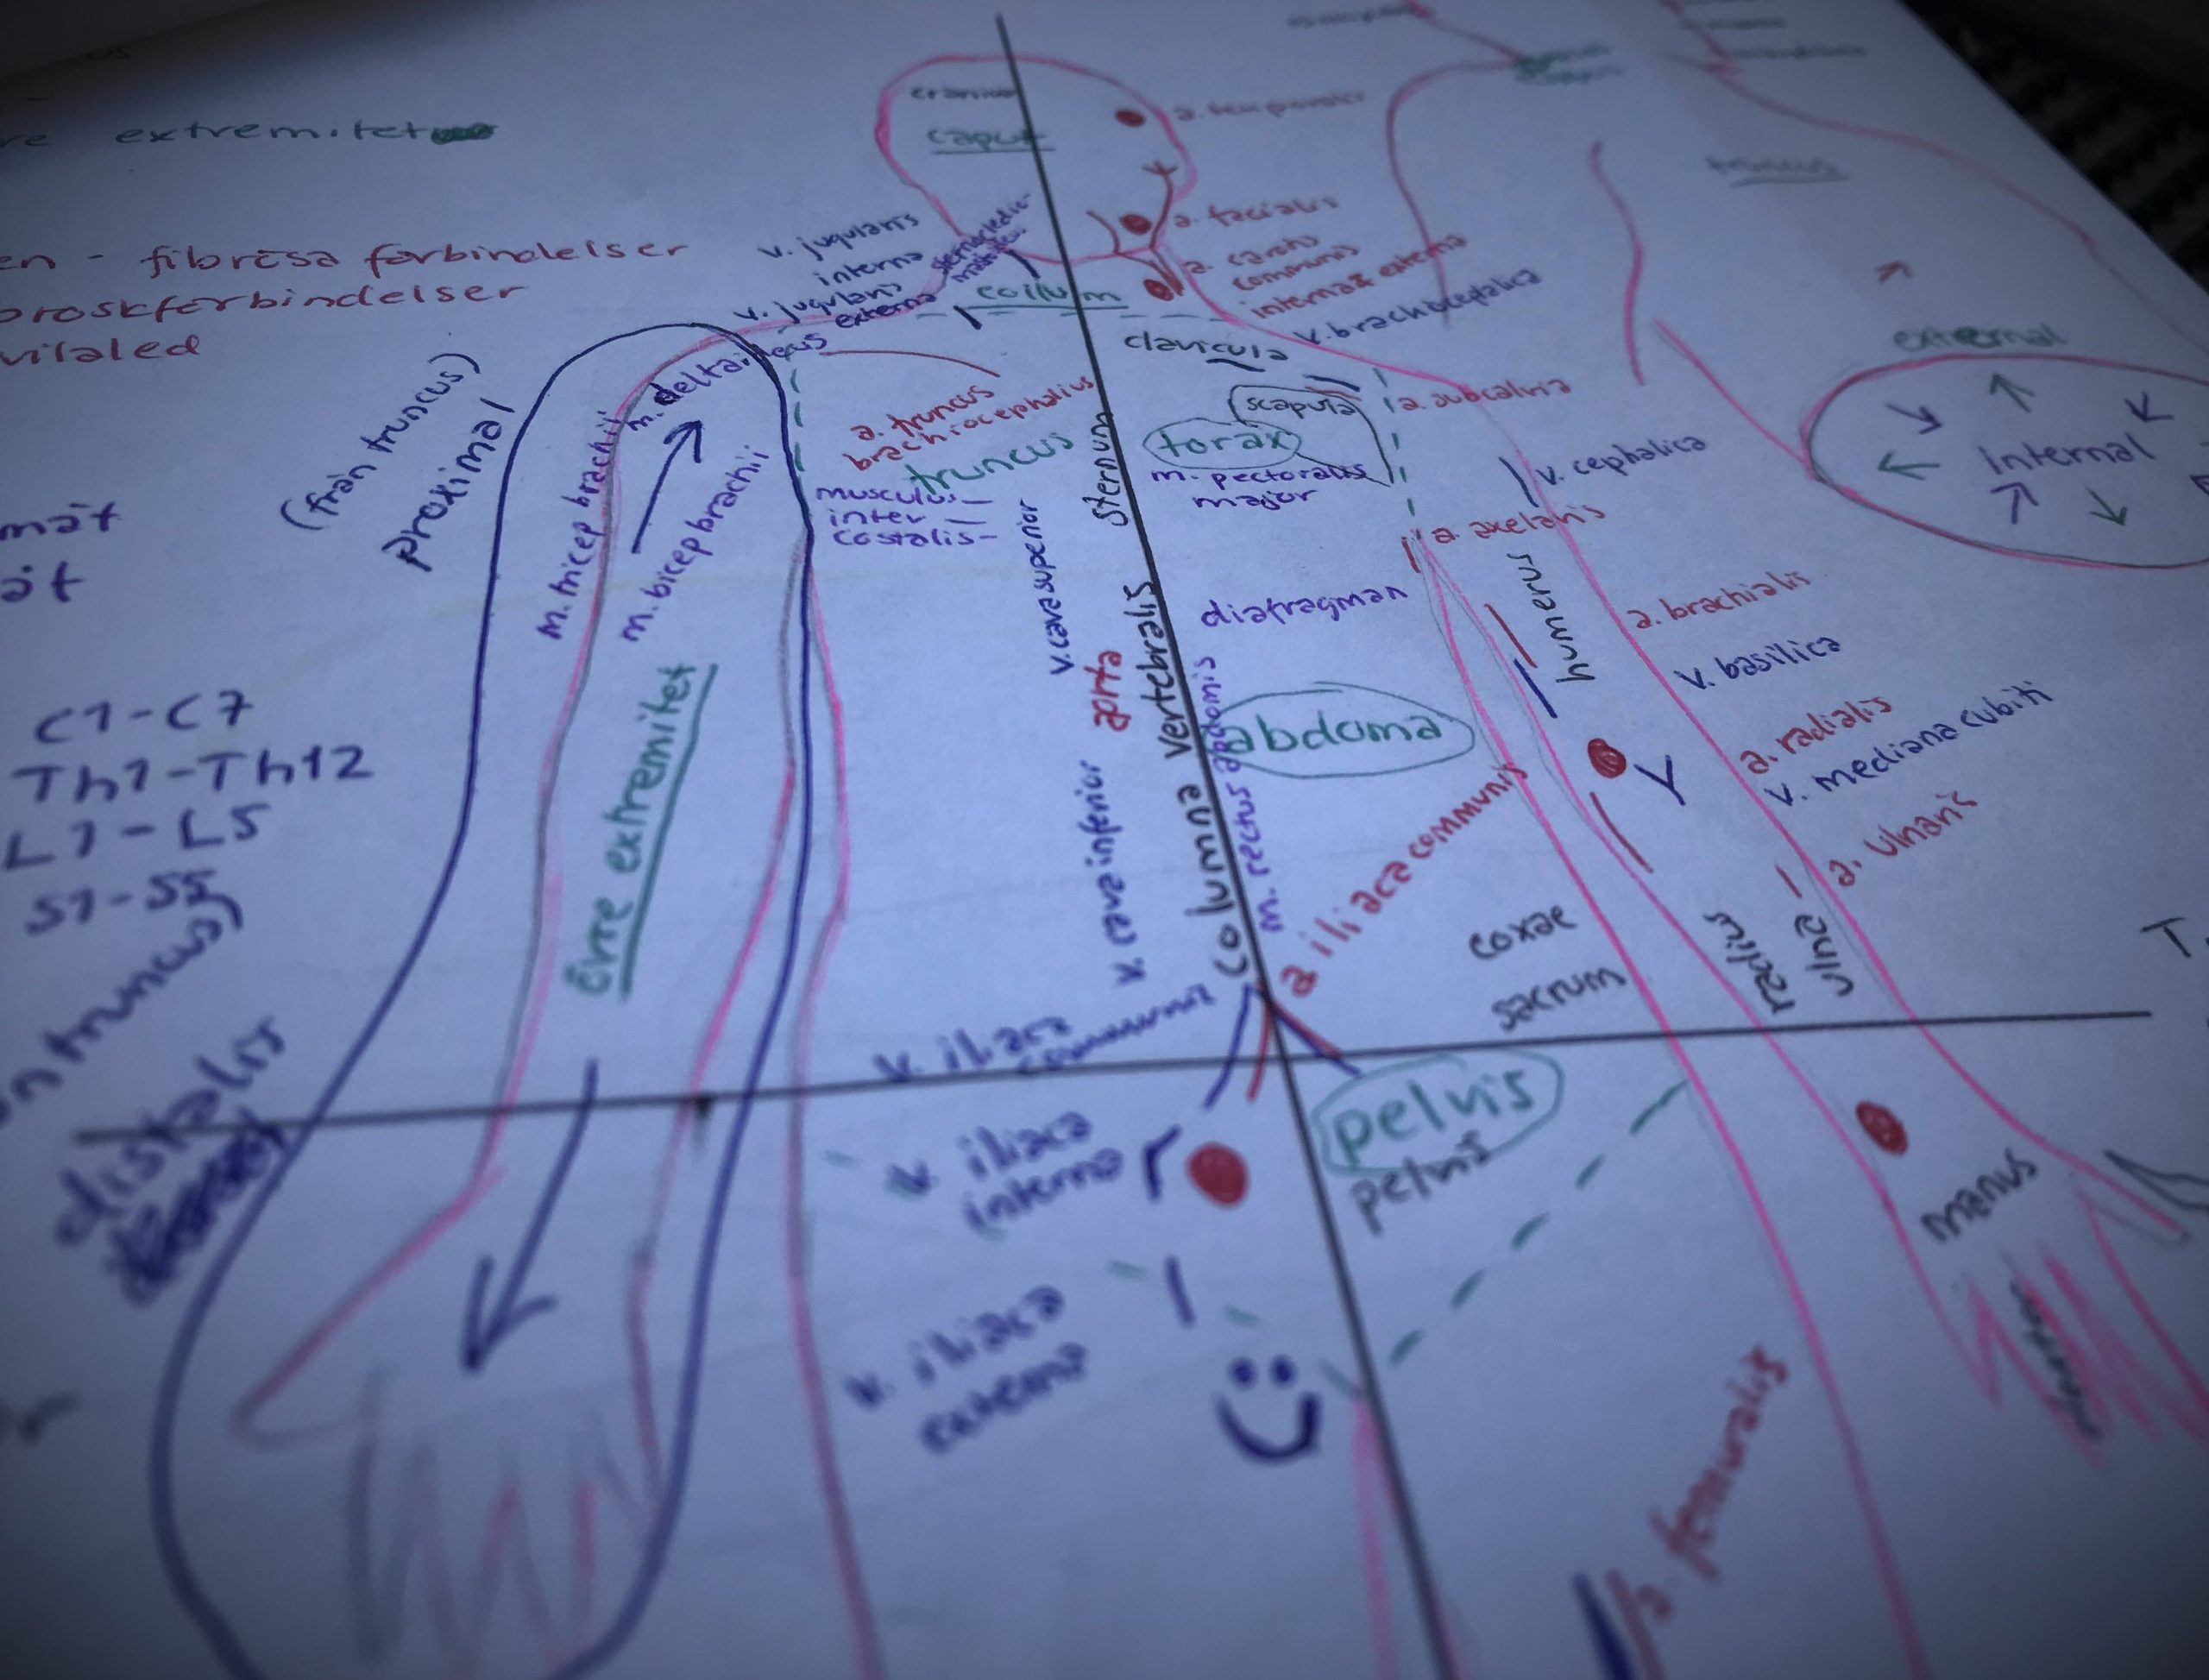 extremitet
en - fibrösa förbindelser
broskförbindelser
cranium
caput
a. temporalis
a. facialis
a. carotis
communis
interna & externa
v. jugularis
interna
v. jugularis
externa
collum
v. brachiocephalica
clavicula
truncus
external
Internal
(från truncus)
proximal
m. tricep brachii
m. bicep brachii
a. truncus
brachiocephalius
truncus
musculus
inter
costalis
sternum
scapula
torax
m. pectoralis
major
a. subcalvia
v. cephalica
a. axelaris
humerus
v. cava superior
aorta
columna vertebralis
diafragman
m. rectus abdomis
abdoma
a. brachialis
v. basilica
a. radialis
v. mediana cubiti
a. ulnaris
mät
C1-C7
Th1-Th12
L1-L5
S1-S5
truncus)
distalis
övre extremitet
v. cava inferior
a iliaca communis
coxae
sacrum
radius
ulna
v. iliaca
communis
pelvis
pelvis
v. iliaca
interna
v. iliaca
externa
manus
a. femuralis